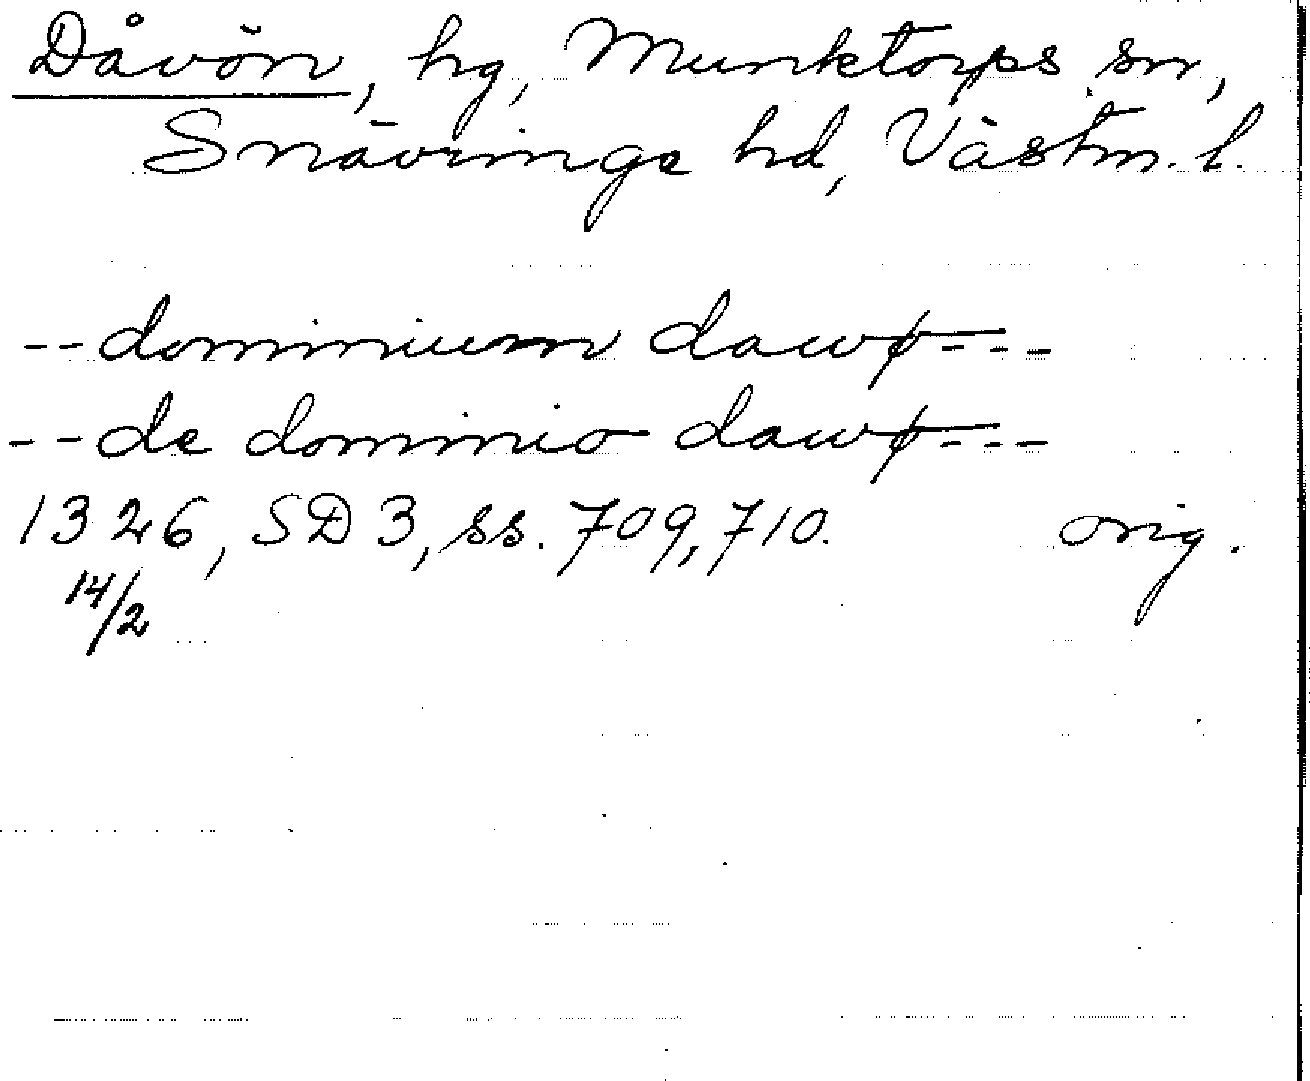 Dåvön, hg, Munktorps sn,
Snävringe hd, Västm. l.
--dominium dawø---
--de dominio dawø---
1326, SD 3, ss. 709, 710. orig.
14/2